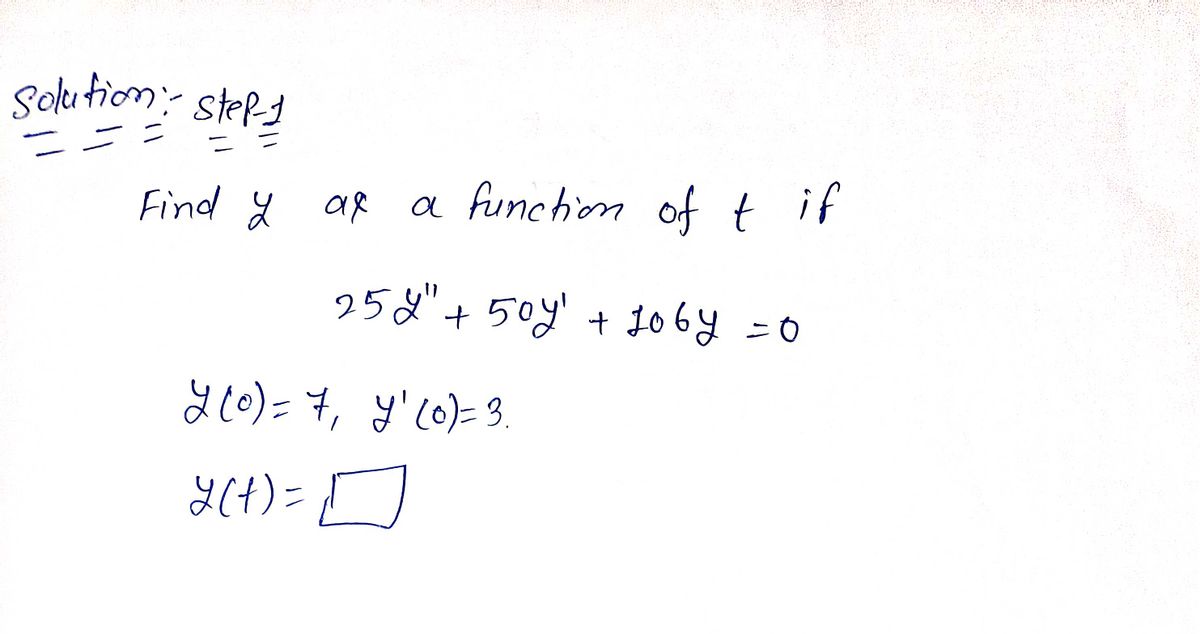 Solution:- Step-1
Find y as a function of t if
25y" + 50y' + 106y = 0
y(0) = 7, y'(0) = 3.
y(t) = □